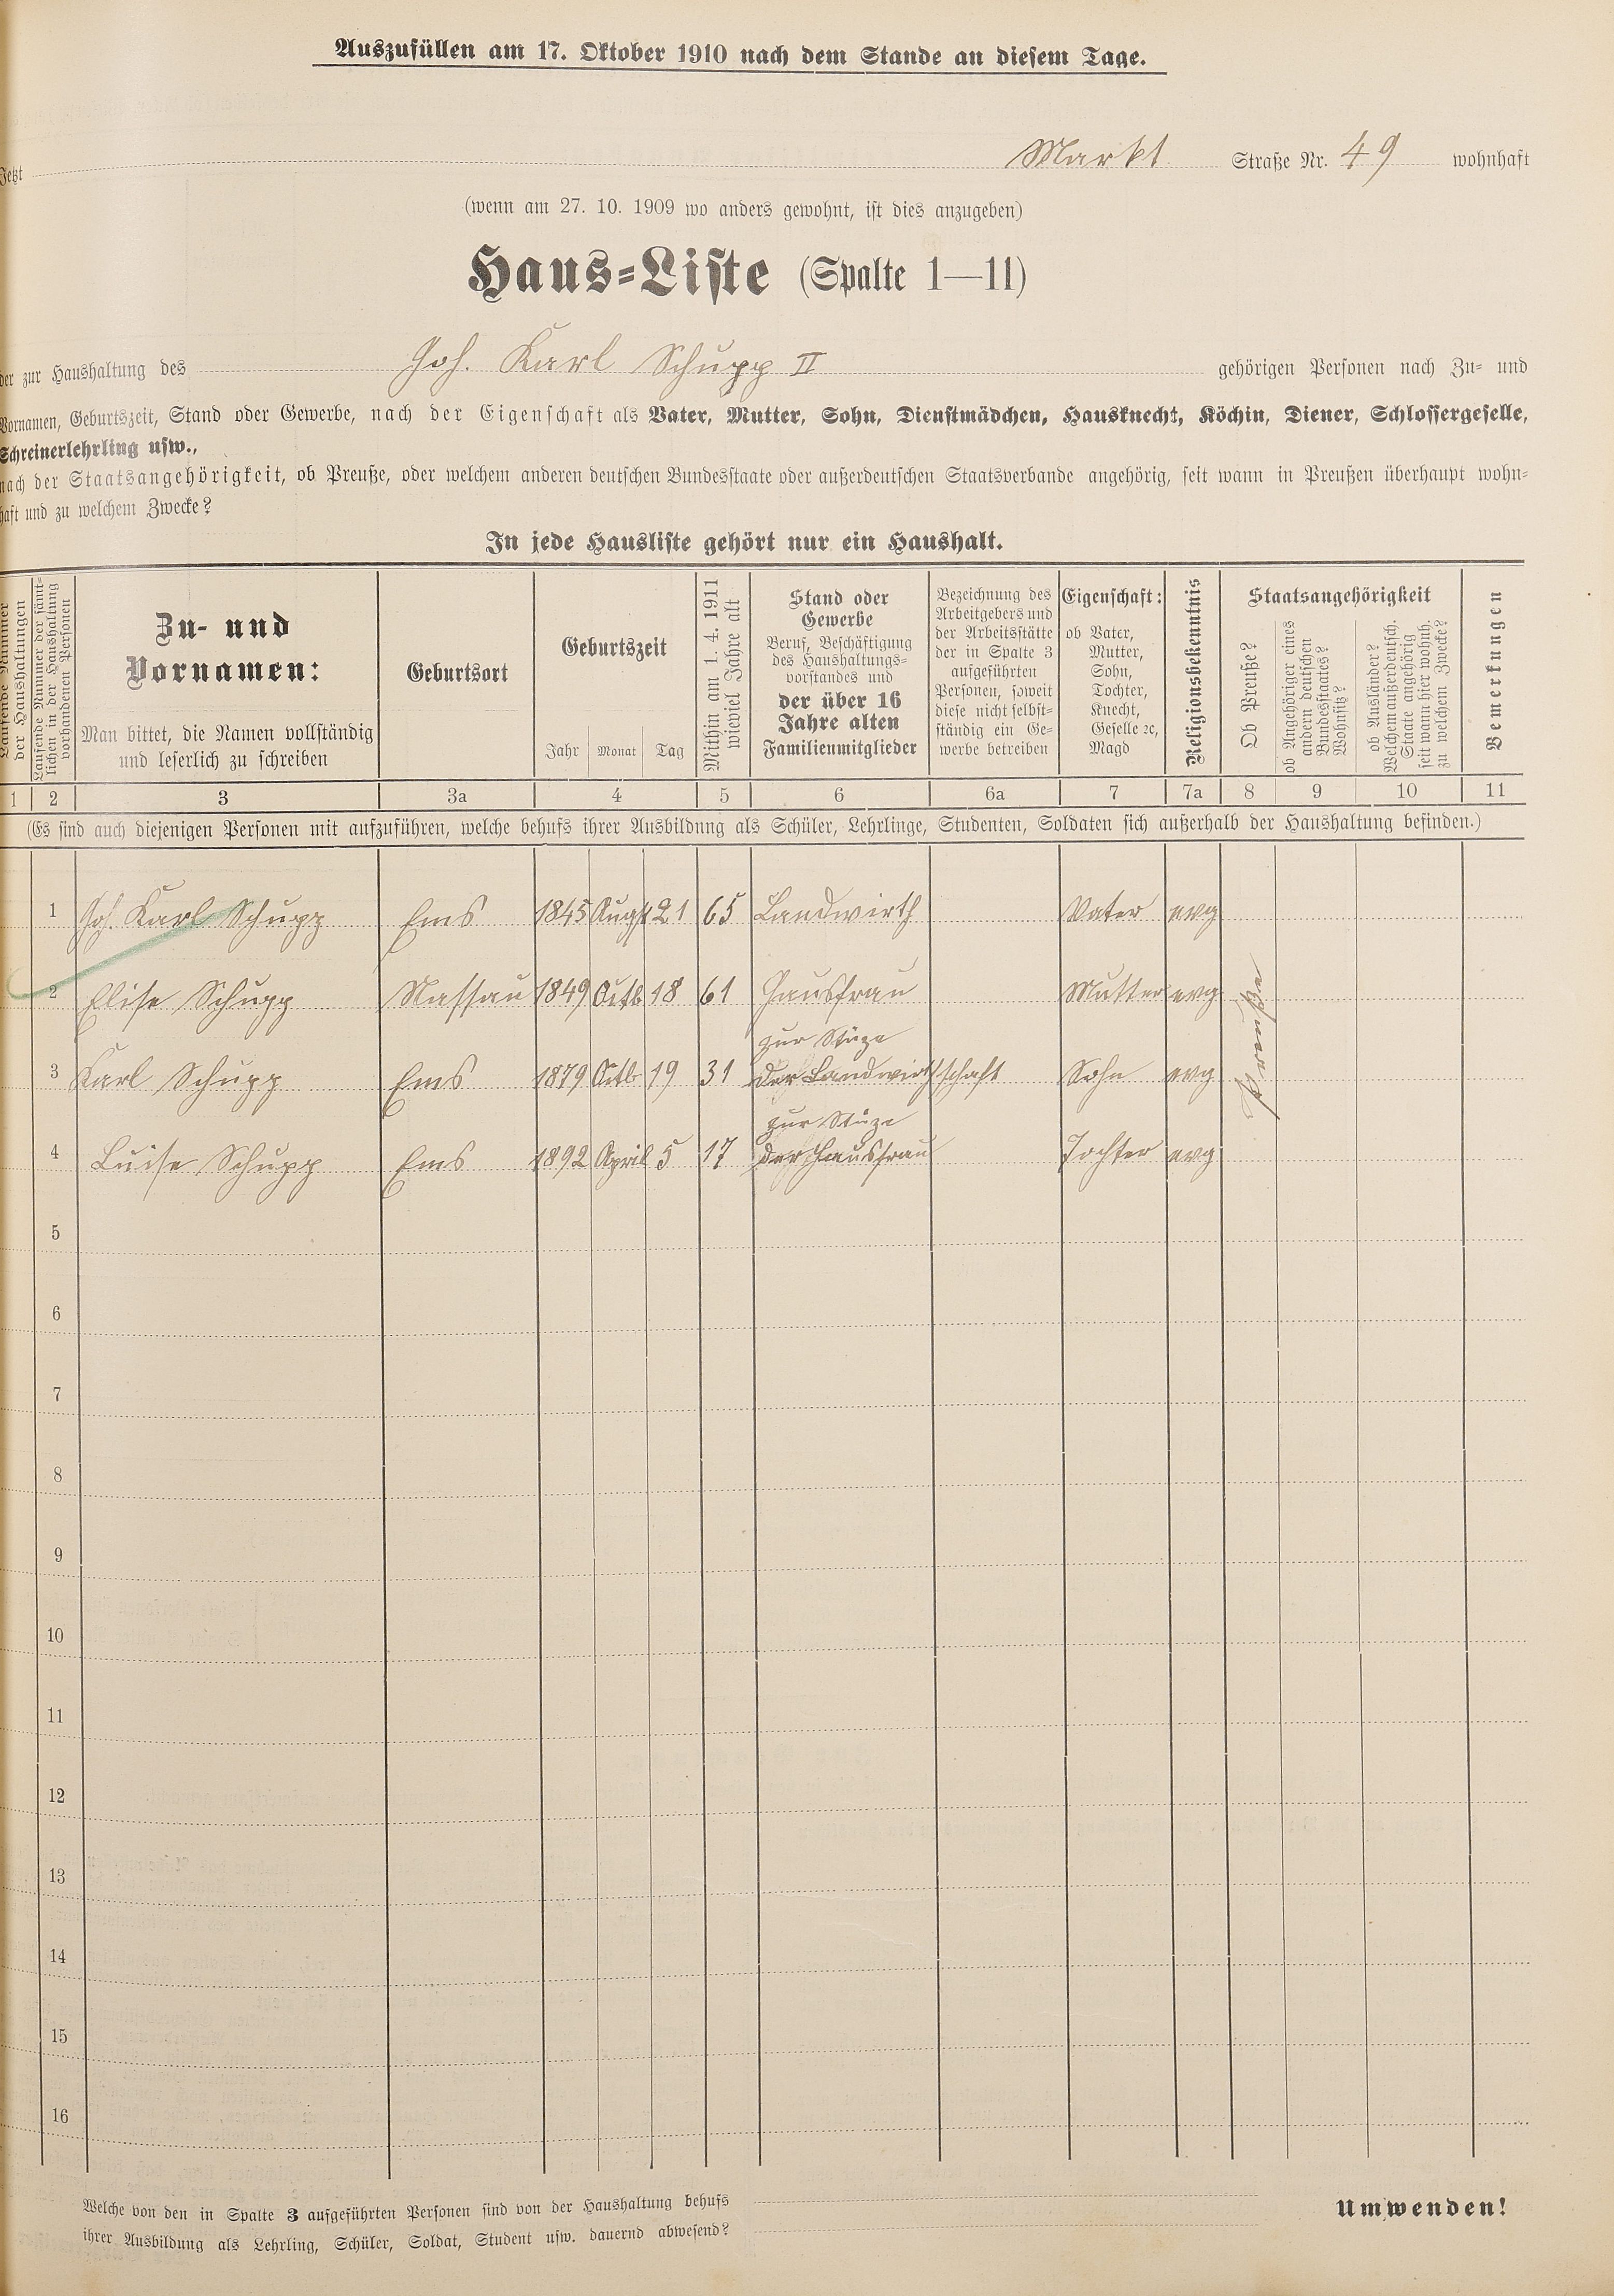 Auszufüllen am 17. Oktober 1910 nach dem Stande an diesem Tage.
Jetzt Markt Straße Nr. 49 wohnhaft
(wenn am 27. 10. 1909 wo anders gewohnt, ist dies anzugeben)
Haus-Liste (Spalte 1—11)
der zur Haushaltung des Joh. Karl Schupp II gehörigen Personen nach Zu- und
Vornamen, Geburtszeit, Stand oder Gewerbe, nach der Eigenschaft als Vater, Mutter, Sohn, Dienstmädchen, Hausknecht, Köchin, Diener, Schlossergeselle,
Schreinerlehrling usw.,
nach der Staatsangehörigkeit, ob Preuße, oder welchem anderen deutschen Bundesstaate oder außerdeutschen Staatsverbande angehörig, seit wann in Preußen überhaupt wohn-
haft und zu welchem Zwecke?
In jede Hausliste gehört nur ein Haushalt.
Laufende Nummer
der Haushaltungen
Laufende Nummer der sämt-
lichen in der Haushaltung
vorhandenen Personen
Zu- und
Vornamen:
Man bittet, die Namen vollständig
und leserlich zu schreiben
Geburtsort
Geburtszeit
Jahr Monat Tag
Mithin am 1. 4. 1911
wieviel Jahre alt
Stand oder
Gewerbe
Beruf, Beschäftigung
des Haushaltungs-
vorstandes und
der über 16
Jahre alten
Familienmitglieder
Bezeichnung des
Arbeitgebers und
der Arbeitsstätte
der in Spalte 3
aufgeführten
Personen, soweit
diese nicht selbst-
ständig ein Ge-
werbe betreiben
Eigenschaft:
ob Vater,
Mutter,
Sohn,
Tochter,
Knecht,
Geselle ꝛc,
Magd
Religionsbekenntnis
Staatsangehörigkeit
Ob Preuße?
ob Angehöriger eines
andern deutschen
Bundesstaates?
Wohnsitz?
ob Ausländer?
Welchem außerdeutsch.
Staate angehörig
seit wann hier wohnh.
zu welchem Zwecke?
Bemerkungen
1 2 3 3a 4 5 6 6a 7 7a 8 9 10 11
(Es sind auch diejenigen Personen mit aufzuführen, welche behufs ihrer Ausbildung als Schüler, Lehrlinge, Studenten, Soldaten sich außerhalb der Haushaltung befinden.)
1 Joh. Karl Schupp Ems 1845 Augst 21 65 Landwirth Vater evg
2 Elise Schupp Nassau 1849 Octb 18 61 Hausfrau Mutter evg
zur Stüze
3 Karl Schupp Ems 1879 Octb 19 31 der Landwirthschaft Sohn evg
zur Stüze
4 Luise Schupp Ems 1892 April 5 17 der Hausfrau Tochter evg
5
6
7
8
9
10
11
12
13
14
15
16
Welche von den in Spalte 3 aufgeführten Personen sind von der Haushaltung behufs
ihrer Ausbildung als Lehrling, Schüler, Soldat, Student usw. dauernd abwesend?
Umwenden!